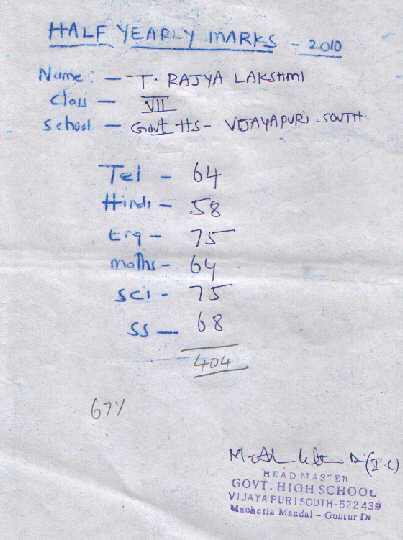 HALF YEARLY MARKS - 2010
Name: - T. RAJYA LAKSHMI
Class - VII
School - Govt HS - VIJAYAPURI SOUTH
Tel - 64
Hindi - 58
Eng - 75
Maths - 64
SCI - 75
SS - 68
404
67%
(I-C)
HEAD MASTER
GOVT. HIGH SCHOOL
VIJAYAPURI SOUTH-522439
Macherla Mandal - Guntur Dt